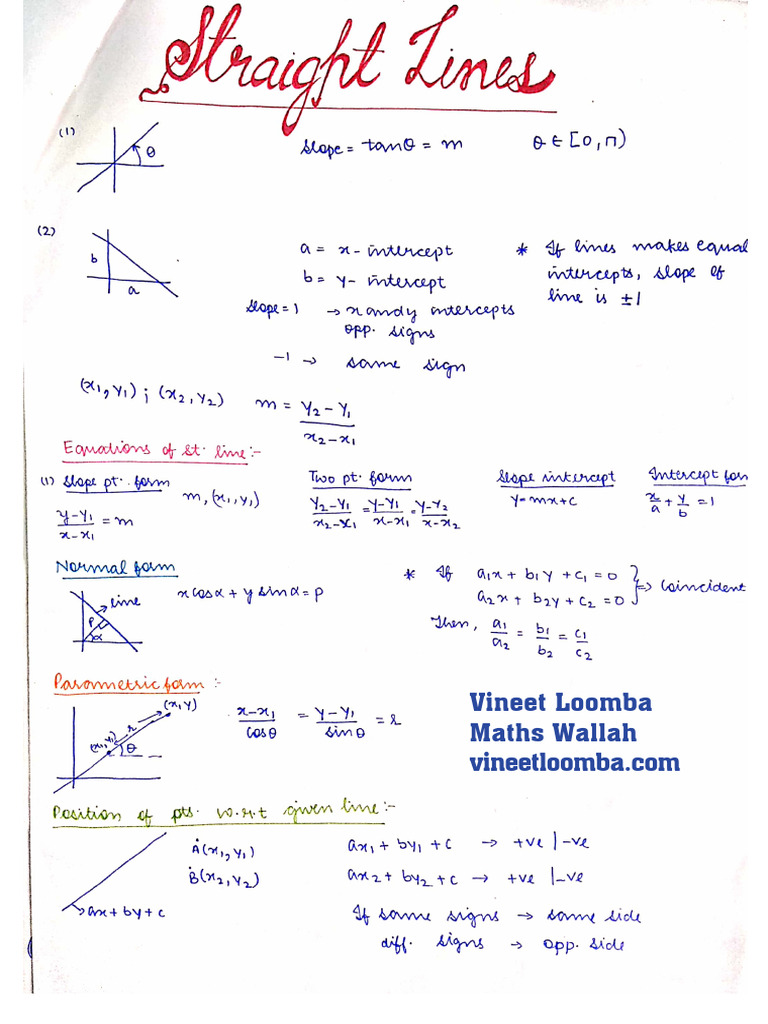 Straight Lines
(1) θ slope = tanθ = m θ ∈ [0, π)
(2) b a
a = x-intercept
b = y-intercept
slope = 1 → x and y intercepts
opp. signs
-1 → same sign
* If lines makes equal
intercepts, slope of
line is ±1
(x₁, y₁) ; (x₂, y₂) m = y₂-y₁/x₂-x₁
Equations of st. line :-
(1) Slope pt. form m, (x₁, y₁)
y-y₁/x-x₁ = m
Two pt. form
y₂-y₁/x₂-x₁ = y-y₁/x-x₁ = y-y₂/x-x₂
Slope intercept
y=mx+c
Intercept for
x/a + y/b = 1
Normal form
line P α
x cosα + y sinα = P
* If a₁x + b₁y + c₁ = 0
a₂x + b₂y + c₂ = 0 } => Coincident
Then, a₁/a₂ = b₁/b₂ = c₁/c₂
Parametric form :-
(x₁, y₁) r (x, y) θ
x-x₁/cosθ = y-y₁/sinθ = r
Vineet Loomba
Maths Wallah
vineetloomba.com
Position of pts. w.r.t given line :-
A(x₁, y₁) ax₁ + by₁ + c → +ve | -ve
B(x₂, y₂) ax₂ + by₂ + c → +ve | -ve
→ ax + by + c
If same signs → same side
diff. signs → opp. side